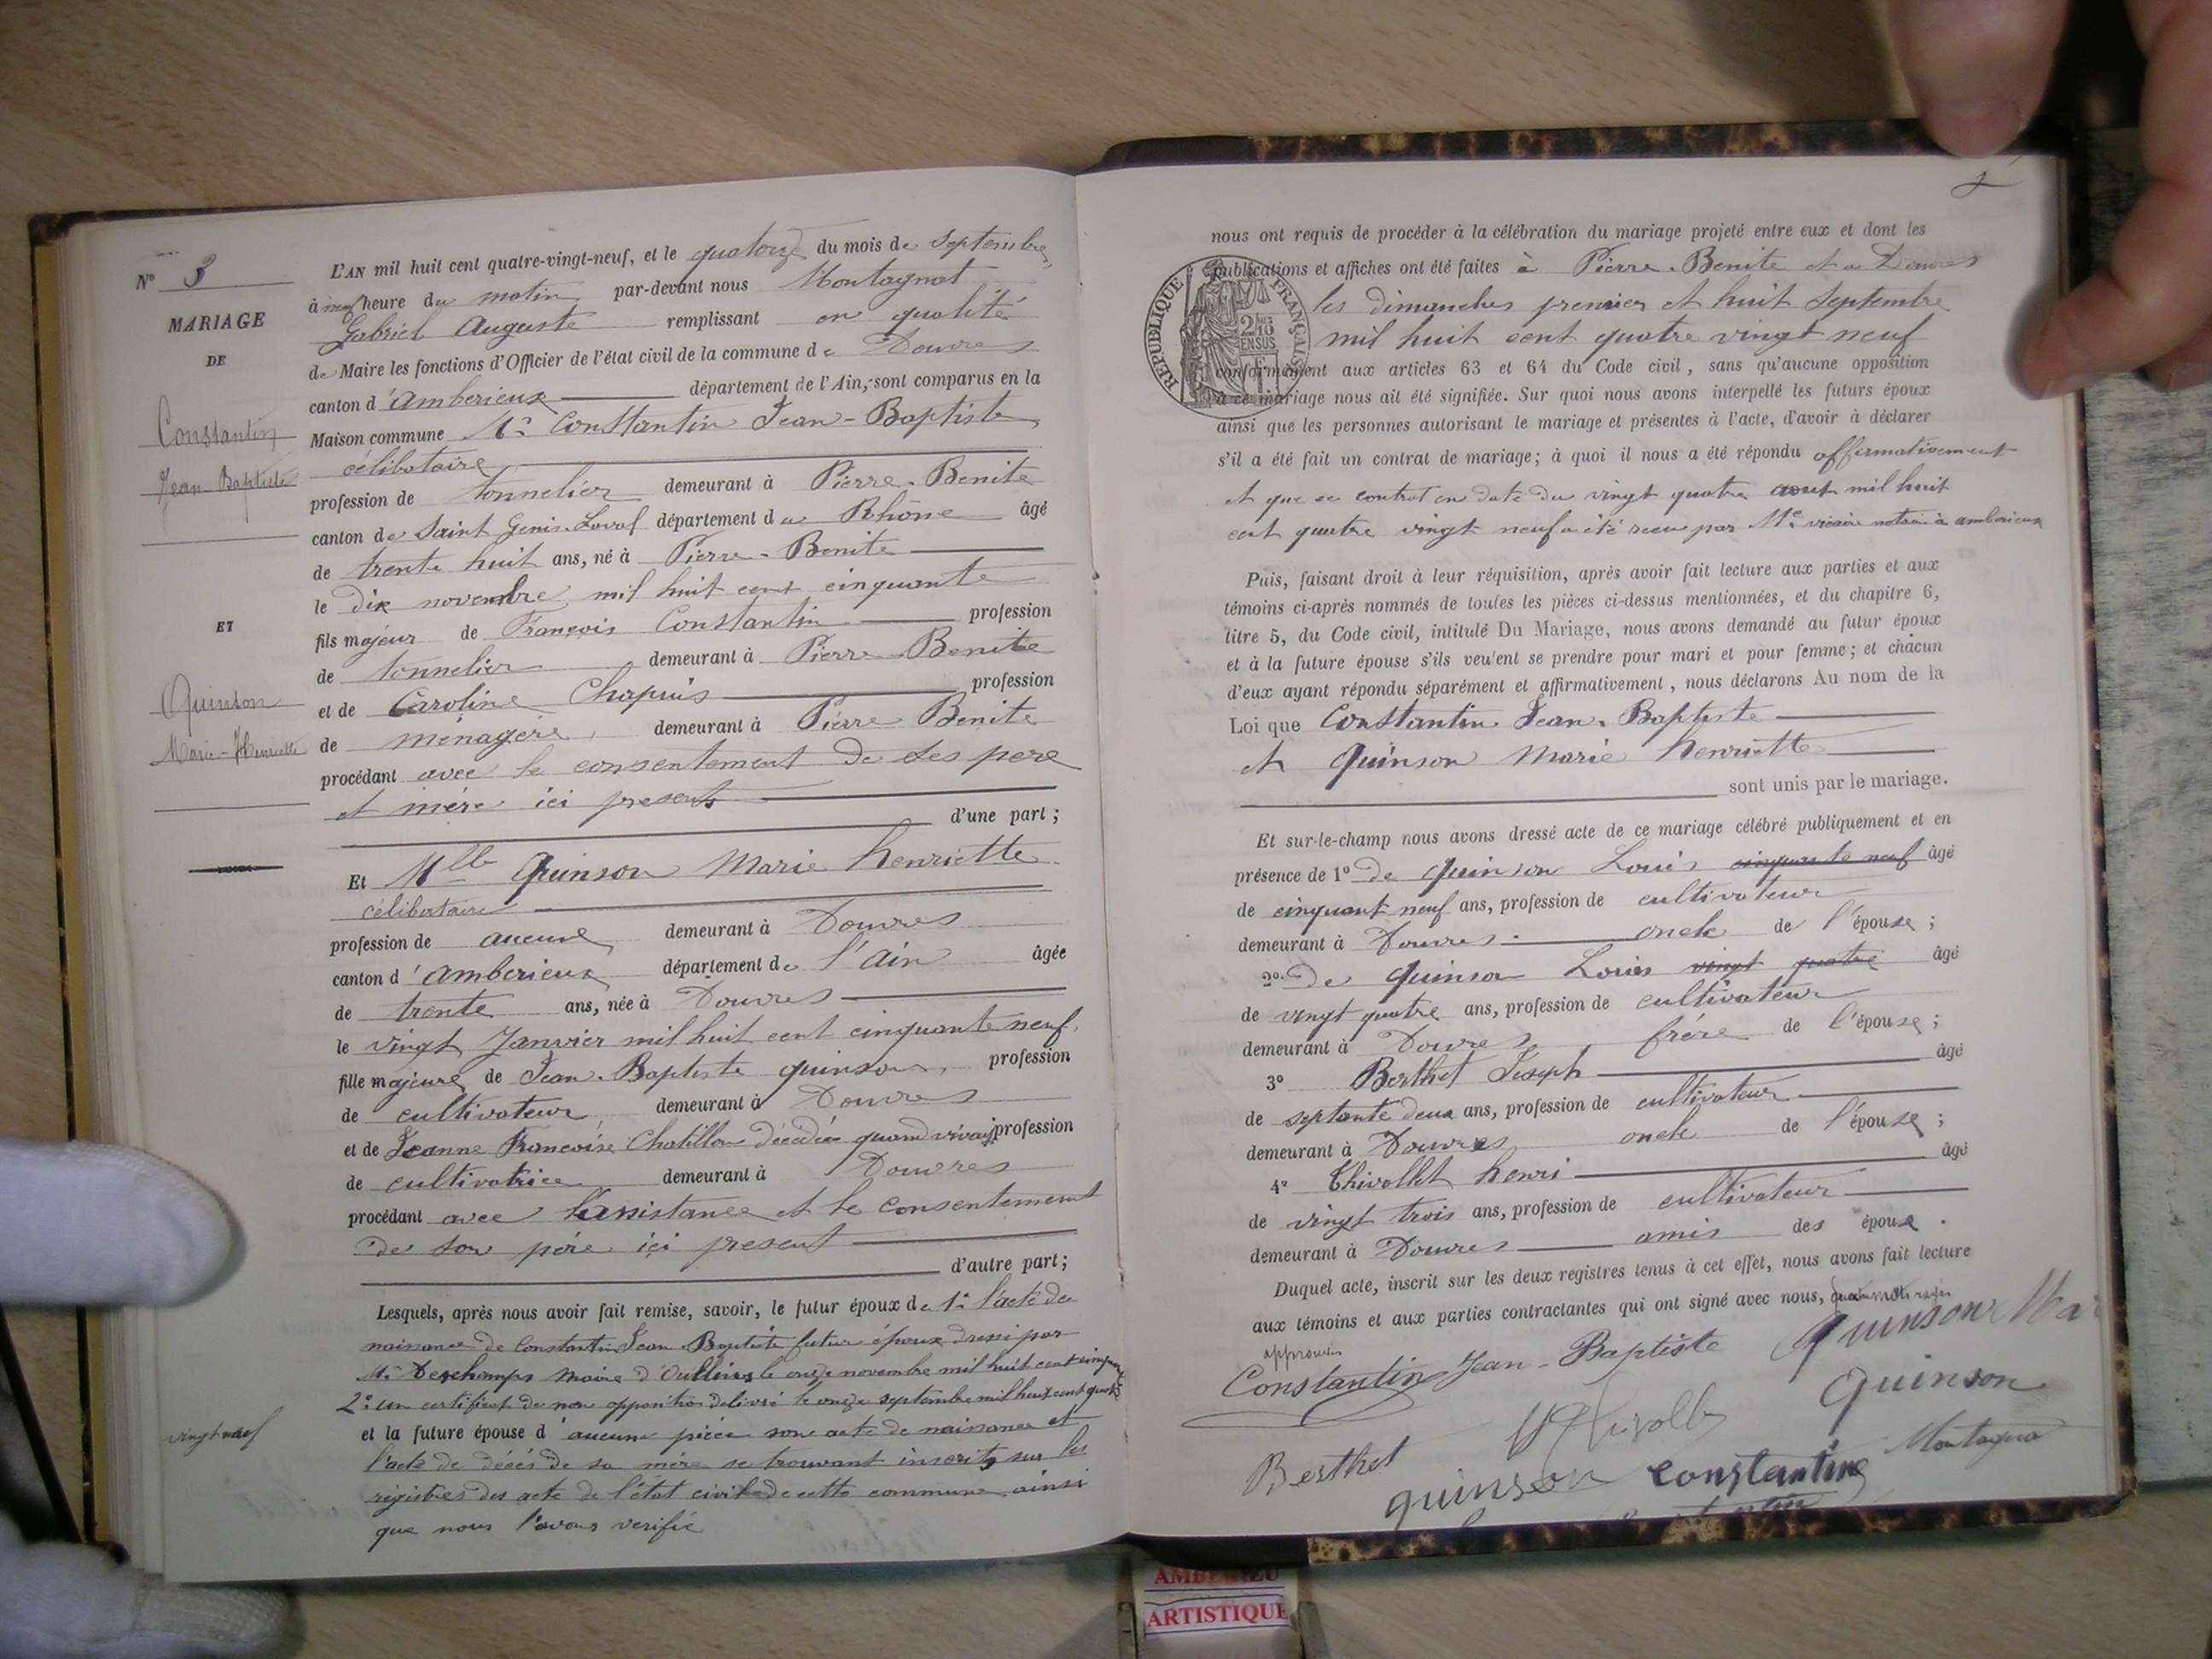 N° 3
MARIAGE
DE
Constantin
Jean Baptiste
ET
Quinson
Marie-Henriette
L'AN mil huit cent quatre-vingt-neuf, et le quatorze du mois de septembre,
à neuf heure du matin par-devant nous Montagnat
Gabriel Auguste remplissant en qualité
de Maire les fonctions d'Officier de l'état civil de la commune de Douvres
canton d'Amberieux département de l'Ain, sont comparus en la
Maison commune Mr Constantin Jean-Baptiste
célibataire
profession de tonnelier demeurant à Pierre-Benite
canton de Saint Genis-Laval département du Rhône âgé
de trente huit ans, né à Pierre-Benite
le dix novembre mil huit cent cinquante
fils majeur de François Constantin profession
de tonnelier demeurant à Pierre-Benite
et de Caroline Chapuis profession
de ménagère demeurant à Pierre Benite
procédant avec le consentement de ses pere
et mère ici presents
d'une part ;
Et Mlle Quinson Marie henriette
célibataire
profession de aucune demeurant à Douvres
canton d'amberieux département de l'Ain âgée
de trente ans, née à Douvres
le vingt Janvier mil huit cent cinquante neuf.
fille majeure de Jean-Baptiste quinson, profession
de cultivateur demeurant à Douvres
et de Jeanne Françoise Chatillon décédée quand vivait profession
de cultivatrice demeurant à Douvres
procédant avec l'assistance et le consentement
de son père ici present
d'autre part;
Lesquels, après nous avoir fait remise, savoir, le futur époux de 1° l'acte de
naissance de Constantin Jean Baptiste futur époux dressé par
Mr Deschamps Maire d'Oullins le onze novembre mil huit cent cinquante
2° un certificat de non opposition delivré le onze septembre mil huit cent quatre
vingt neuf
et la future épouse d'aucune pièce son acte de naissance et
l'acte de décés de sa mère se trouvant inscrits sur les
registres des acte de l'état civil de cette commune ainsi
que nous l'avons verifié
nous ont requis de procéder à la célébration du mariage projeté entre eux et dont les
publications et affiches ont été faites à Pierre-Benite et a Douvres
les dimanches premier et huit Septembre
mil huit cent quatre vingt neuf
RÉPUBLIQUE FRANÇAISE
conformément aux articles 63 et 64 du Code civil, sans qu'aucune opposition
à ce mariage nous ait été signifiée. Sur quoi nous avons interpellé les futurs époux
ainsi que les personnes autorisant le mariage et présentes à l'acte, d'avoir à déclarer
s'il a été fait un contrat de mariage; à quoi il nous a été répondu affirmativement
et que ce contrat en date du vingt quatre aout mil huit
cent quatre vingt neuf a été recu par Me notaire à amberieux
Puis, faisant droit à leur réquisition, après avoir fait lecture aux parties et aux
témoins ci-après nommés de toutes les pièces ci-dessus mentionnées, et du chapitre 6,
titre 5, du Code civil, intitulé Du Mariage, nous avons demandé au futur époux
et à la future épouse s'ils veulent se prendre pour mari et pour femme; et chacun
d'eux ayant répondu séparément et affirmativement, nous déclarons Au nom de la
Loi que Constantin Jean-Baptiste
et Quinson Marie henriette
sont unis par le mariage.
Et sur-le-champ nous avons dressé acte de ce mariage célébré publiquement et en
présence de 1° de Quinson Louis cinquante neuf âgé
de cinquant neuf ans, profession de cultivateur
demeurant à Douvres oncle de l'épouse ;
2° de Quinson Louis vingt quatre âgé
de vingt quatre ans, profession de cultivateur
demeurant à Douvres frére de l'épouse ;
3° Berthet Joseph âgé
de septante deux ans, profession de cultivateur
demeurant à Douvres oncle de l'épouse ;
4° Thivollet henri âgé
de vingt trois ans, profession de cultivateur
demeurant à Douvres amis des épous.
Duquel acte, inscrit sur les deux registres tenus à cet effet, nous avons fait lecture
aux témoins et aux parties contractantes qui ont signé avec nous, quatre mots rayés
approuvés
Constantin Jean-Baptiste Quinson Mar
Quinson
Berthet
Montagna
quinson constantin
AMBERIEU
ARTISTIQUE